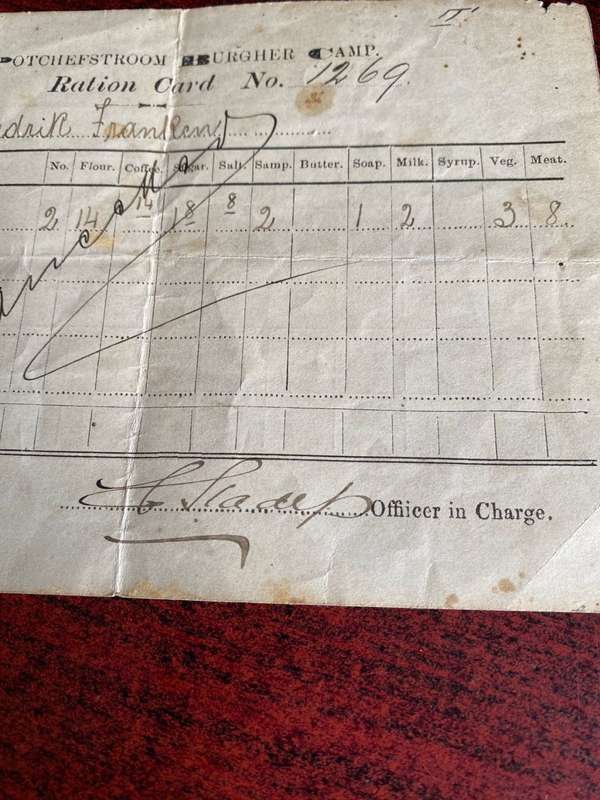 POTCHEFSTROOM BURGHER CAMP.
Ration Card No. 1269.
edrik Franken
No. Flour. Coffee. Sugar. Salt. Samp. Butter. Soap. Milk. Syrup. Veg. Meat.
2 14 14 18 8 2 1 2 3 8
Officer in Charge.